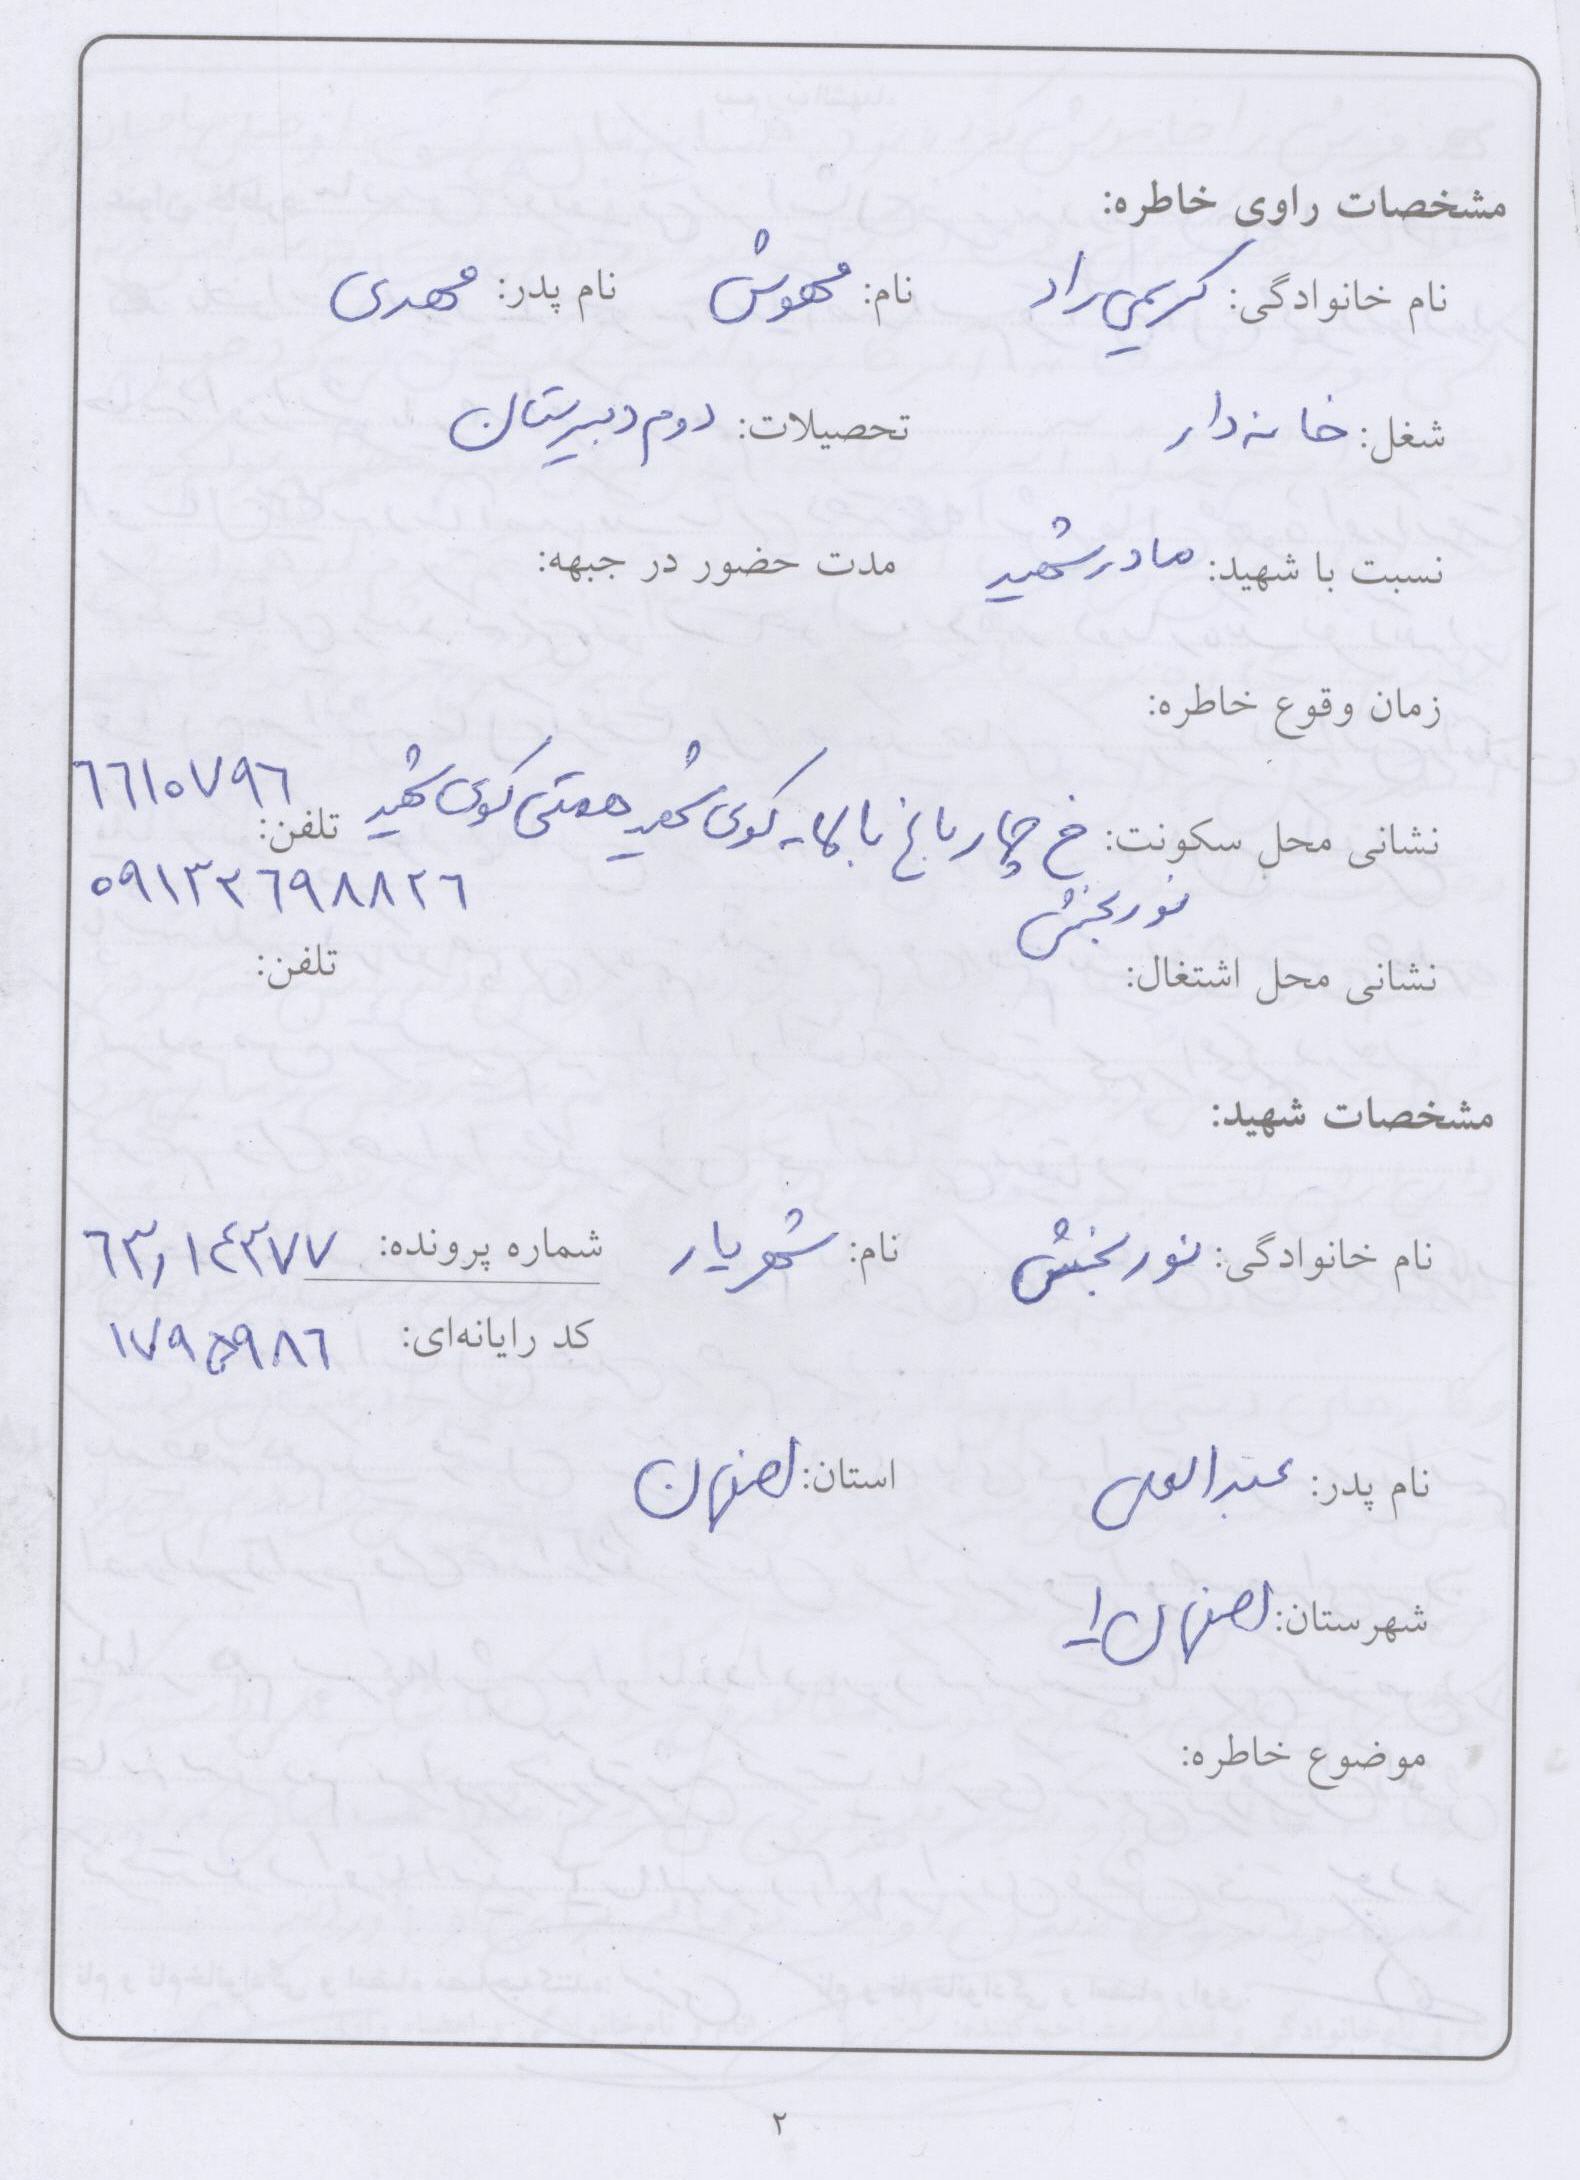 مشخصات راوی خاطره:
نام خانوادگی: کریمی راد نام: مهوش نام پدر: مهدی
شغل: خانه دار تحصیلات: دوم دبیرستان
نسبت با شهید: مادر شهید مدت حضور در جبهه:
زمان وقوع خاطره:
نشانی محل سکونت: خ چهارباغ بالا - کوی شهید همتی کوی شهید تلفن: ٦٦١٠٧٩٦
نوربخش ٠٩١٣٢٦٩٨٨٢٦
نشانی محل اشتغال: تلفن:
مشخصات شهید:
نام خانوادگی: نوربخش نام: شهریار شماره پرونده: ٦٣٫١٤٣٧٧
کد رایانه‌ای: ١٧٩٥٩٨٦
نام پدر: عبدالعلی استان: اصفهان
شهرستان: اصفهان ١
موضوع خاطره:
٢